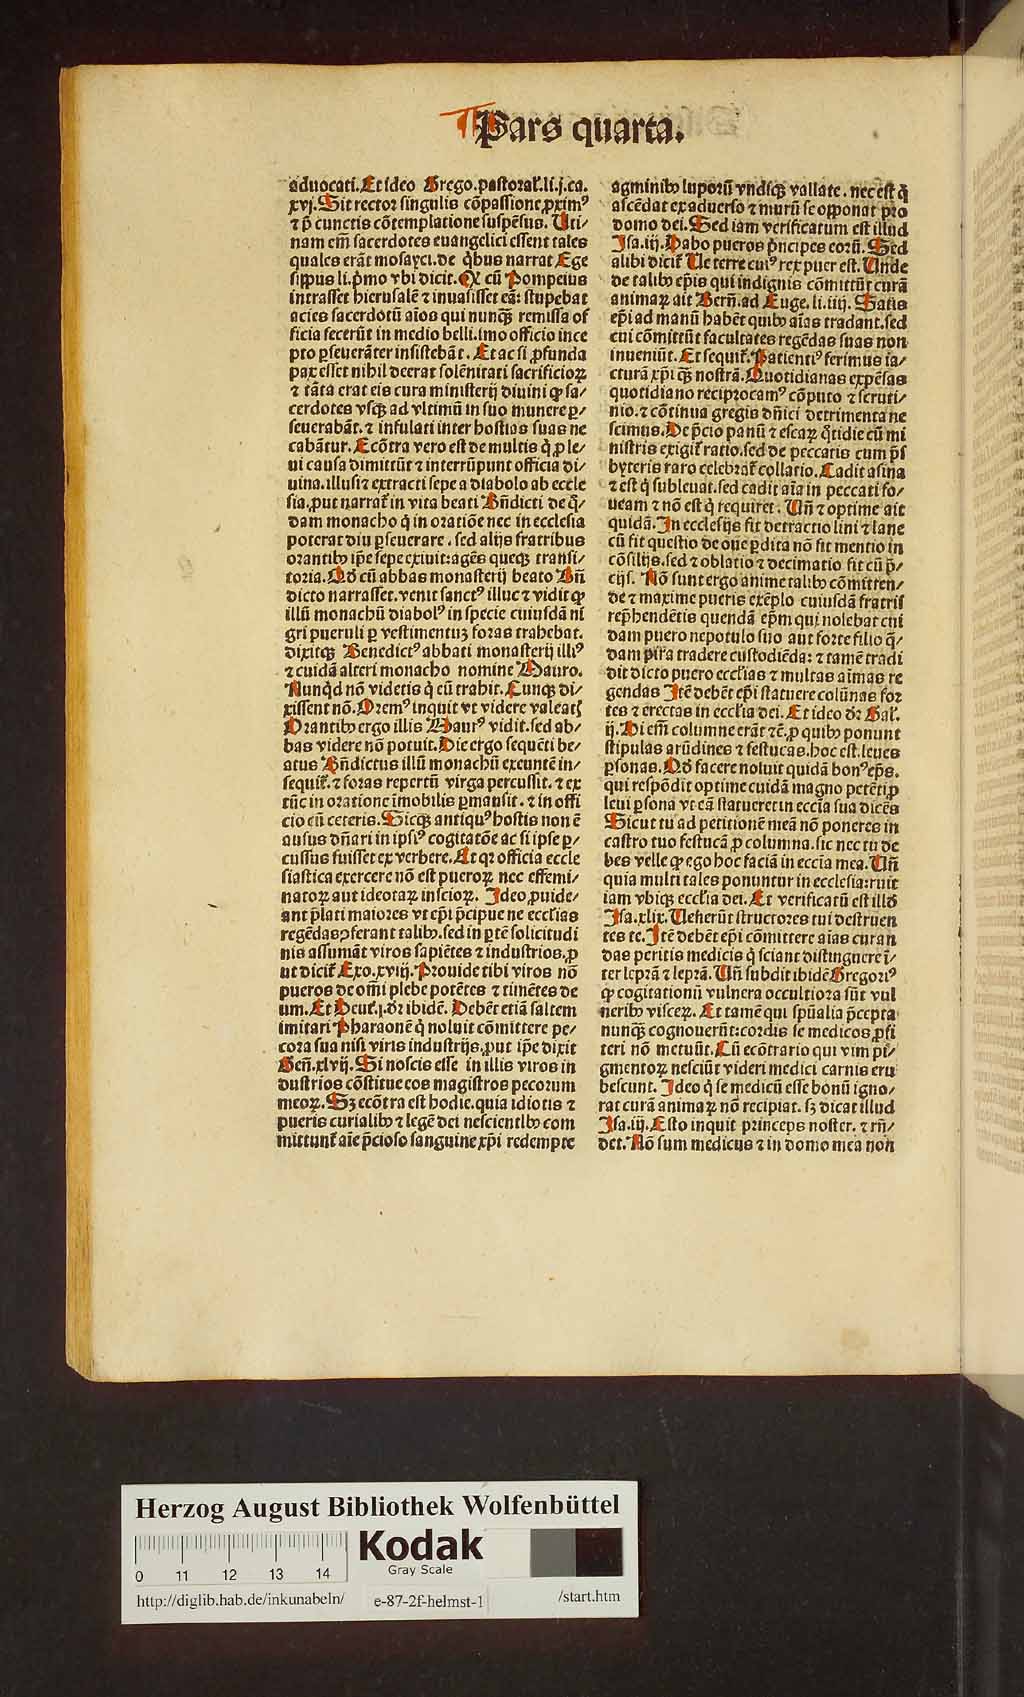 Pars quarta.
aduocati. Et ideo Grego. pastoral̃. li. j. ca.
xvj. Sit rector singulis cõpassione ꝓximꝰ
⁊ p̃ cunctis cõtemplatione suspẽsus. Uti-
nam em̃ sacerdotes euangelici essent tales
quales erãt mosayci. de q̃bus narrat Ege
sippus li. p̃mo vbi dicit. Qꝫ cũ Pompeius
intrasset hierusalẽ ⁊ inuasisset eã: stupebat
acies sacerdotũ aĩos qui nunqꝫ remissa of
ficia fecerũt in medio belli. imo officio ince
pto ꝑseuerãter insistebãt. Et ac si ꝓfunda
pax esset nihil deerat solẽnitati sacrificioꝝ
⁊ tãta erat eis cura ministerij diuini ꝙ sa/
cerdotes vsqꝫ ad vltimũ in suo munere ꝑ/
seuerabãt. ⁊ infulati inter hostias suas ne
cabãtur. Ecõtra vero est de multis q̃ ꝓ le/
ui causa dimittũt ⁊ interrũpunt officia di/
uina. illusi ⁊ extracti sepe a diabolo ab eccle
sia. ꝓut narrat̃ in vita beati Bñdicti de q̃/
dam monacho q̃ in oratiõe nec in ecclesia
poterat diu ꝑseuerare. sed alijs fratribus
orantibꝰ ip̃e sepe exiuit: agẽs queqꝫ transi/
toria. Qd̃ cũ abbas monasterij beato Bñ
dicto narrasset. venit sanctꝰ illuc ⁊ vidit ꝙ
illũ monachũ diabolꝰ in specie cuiusdã ni
gri pueruli ꝑ vestimentuꝫ foras trahebat.
dixitqꝫ Benedictꝰ abbati monasterij illiꝰ
⁊ cuidã alteri monacho nomine Mauro.
Nunq̃d nõ videtis q̃ cũ trahit. Cunqꝫ di/
xissent nõ. Oremꝰ inquit vt videre valeatꝭ
Orantibꝰ ergo illis Maurꝰ vidit. sed ab/
bas videre nõ potuit. Die ergo sequẽti be/
atus Bñdictus illũ monachũ exeuntẽ in/
sequit̃. ⁊ foras repertũ virga percussit. ⁊ ex
tũc in oratione ĩmobilis ꝑmansit. ⁊ in offi
cio cũ ceteris. Sicqꝫ antiquꝰ hostis non ẽ
ausus dñari in ipsiꝰ cogitatõe ac si ipse ꝑ/
cussus fuisset ex verbere. At qꝛ officia eccle
siastica exercere nõ est pueroꝝ nec effemi/
natoꝝ aut ideotaꝝ inscioꝝ. Ideo ꝓuide/
ant p̃lati maiores vt ep̃i p̃cipue ne eccl̃ias
regẽdas ꝯferant talibꝰ. sed in ꝑtẽ solicitudi
nis assumãt viros sapiẽtes ⁊ industrios. ꝓ
ut dicit̃ Exo. xviij. Prouide tibi viros nõ
pueros de om̃i plebe potẽtes ⁊ timẽtes de
um. Et Deut̃. j. dr̃ ibidẽ. Debẽt etiã saltem
imitari Pharaonẽ q̃ noluit cõmittere pe/
cora sua nisi viris industrijs. ꝓut ip̃e dixit
Geñ. xlvij. Si noscis esse in illis viros in
dustrios cõstitue eos magistros pecorum
meoꝝ. Sꝫ ecõtra est hodie. quia idiotis ⁊
pueris curialibꝰ ⁊ legẽ dei nescientibꝰ com
mittunt̃ aĩe p̃cioso sanguine xp̃i redempte
agminibꝰ luporũ vndiqꝫ vallate. nec est q̃
ascẽdat ex aduerso ⁊ murũ se opponat pro
domo dei. Sed iam verificatum est illud
Isa. iij. Dabo pueros p̃ncipes eorũ. Sed
alibi dicit̃ Ue terre cuiꝰ rex puer est. Unde
de talibꝰ ep̃is qui indignis cõmittũt curã
animaꝝ ait Berñ. ad Euge. li. iiij. Satis
ep̃i ad manũ habẽt quibꝰ aĩas tradant. sed
cui cõmittũt facultates regẽdas suas non
inueniũt. Et sequit̃. Patientiꝰ ferimus ia/
cturã xp̃i qꝫ nostrã. Quotidianas expẽsas
quotidiano reciprocamꝰ cõputo ⁊ scruti/
nio. ⁊ cõtinua gregis dñici detrimenta ne
scimus. De p̃cio panũ ⁊ escaꝝ q̃tidie cũ mi
nistris exigit̃ ratio. sed de peccatis cum p̃s
byteris raro celebrat̃ collatio. Cadit asina
⁊ est q̃ subleuat. sed cadit aĩa in peccati fo/
ueam ⁊ nõ est q̃ requiret. Uñ ⁊ optime ait
quidã. In ecclesijs fit detractio lini ⁊ lane
cũ fit questio de oue ꝑdita nõ fit mentio in
cõsilijs. sed ⁊ oblatio ⁊ decimatio fit cũ p̃/
cijs. Nõ sunt ergo anime talibꝰ cõmitten/
de ⁊ maxime pueris exẽplo cuiusdã fratris
rep̃hendẽtis quendã ep̃m qui nolebat cui
dam puero nepotulo suo aut forte filio q̃/
dam pira tradere custodiẽda: ⁊ tamẽ tradi
dit dicto puero eccl̃ias ⁊ multas aĩmas re
gendas Itẽ debẽt ep̃i statuere colũnas for
tes ⁊ erectas in eccl̃ia dei. Et ideo dr̃ Gal̃.
ij. Di em̃ columne erãt ⁊c̃. ꝓ quibꝰ ponunt
stipulas arũdines ⁊ festucas. hoc est. leues
ꝑsonas. Qd̃ facere noluit quidã bonꝰ ep̃s.
qui respõdit optime cuidã magno petẽti ꝓ
leui ꝑsona vt eã statueret in eccĩa sua dicẽs
Sicut tu ad petitionẽ meã nõ poneres in
castro tuo festucã ꝓ columna. sic nec tu de
bes velle ꝙ ego hoc faciã in eccĩa mea. Uñ
quia multi tales ponuntur in ecclesia: ruit
iam vbiqꝫ eccl̃ia dei. Et verificatũ est illd̃
Isa. xlix. Ueherũt structores tui destruen
tes te. Itẽ debẽt ep̃i cõmittere aĩas curan
das peritis medicis q̃ sciant distinguere ĩ/
ter leprã ⁊ leprã. Uñ subdit ibidẽ Gregoriꝰ
ꝙ cogitationũ vulnera occultiora sũt vul
neribꝰ visceꝝ. Et tamẽ qui sp̃ualia p̃cepta
nunqꝫ cognouerũt: cordis se medicos ꝓfi
teri nõ metuũt. Cũ ecõtrario qui vim pi/
gmentoꝝ nesciũt videri medici carnis eru
bescunt. Ideo q̃ se medicũ esse bonũ igno/
rat curã animaꝝ nõ recipiat. sꝫ dicat illud
Isa. iij. Esto inquit princeps noster. ⁊ rñ/
det. Nõ sum medicus ⁊ in domo mea non
Herzog August Bibliothek Wolfenbüttel
0 11 12 13 14
Kodak
Gray Scale
http://diglib.hab.de/inkunabeln/ e-87-2f-helmst-1 /start.htm